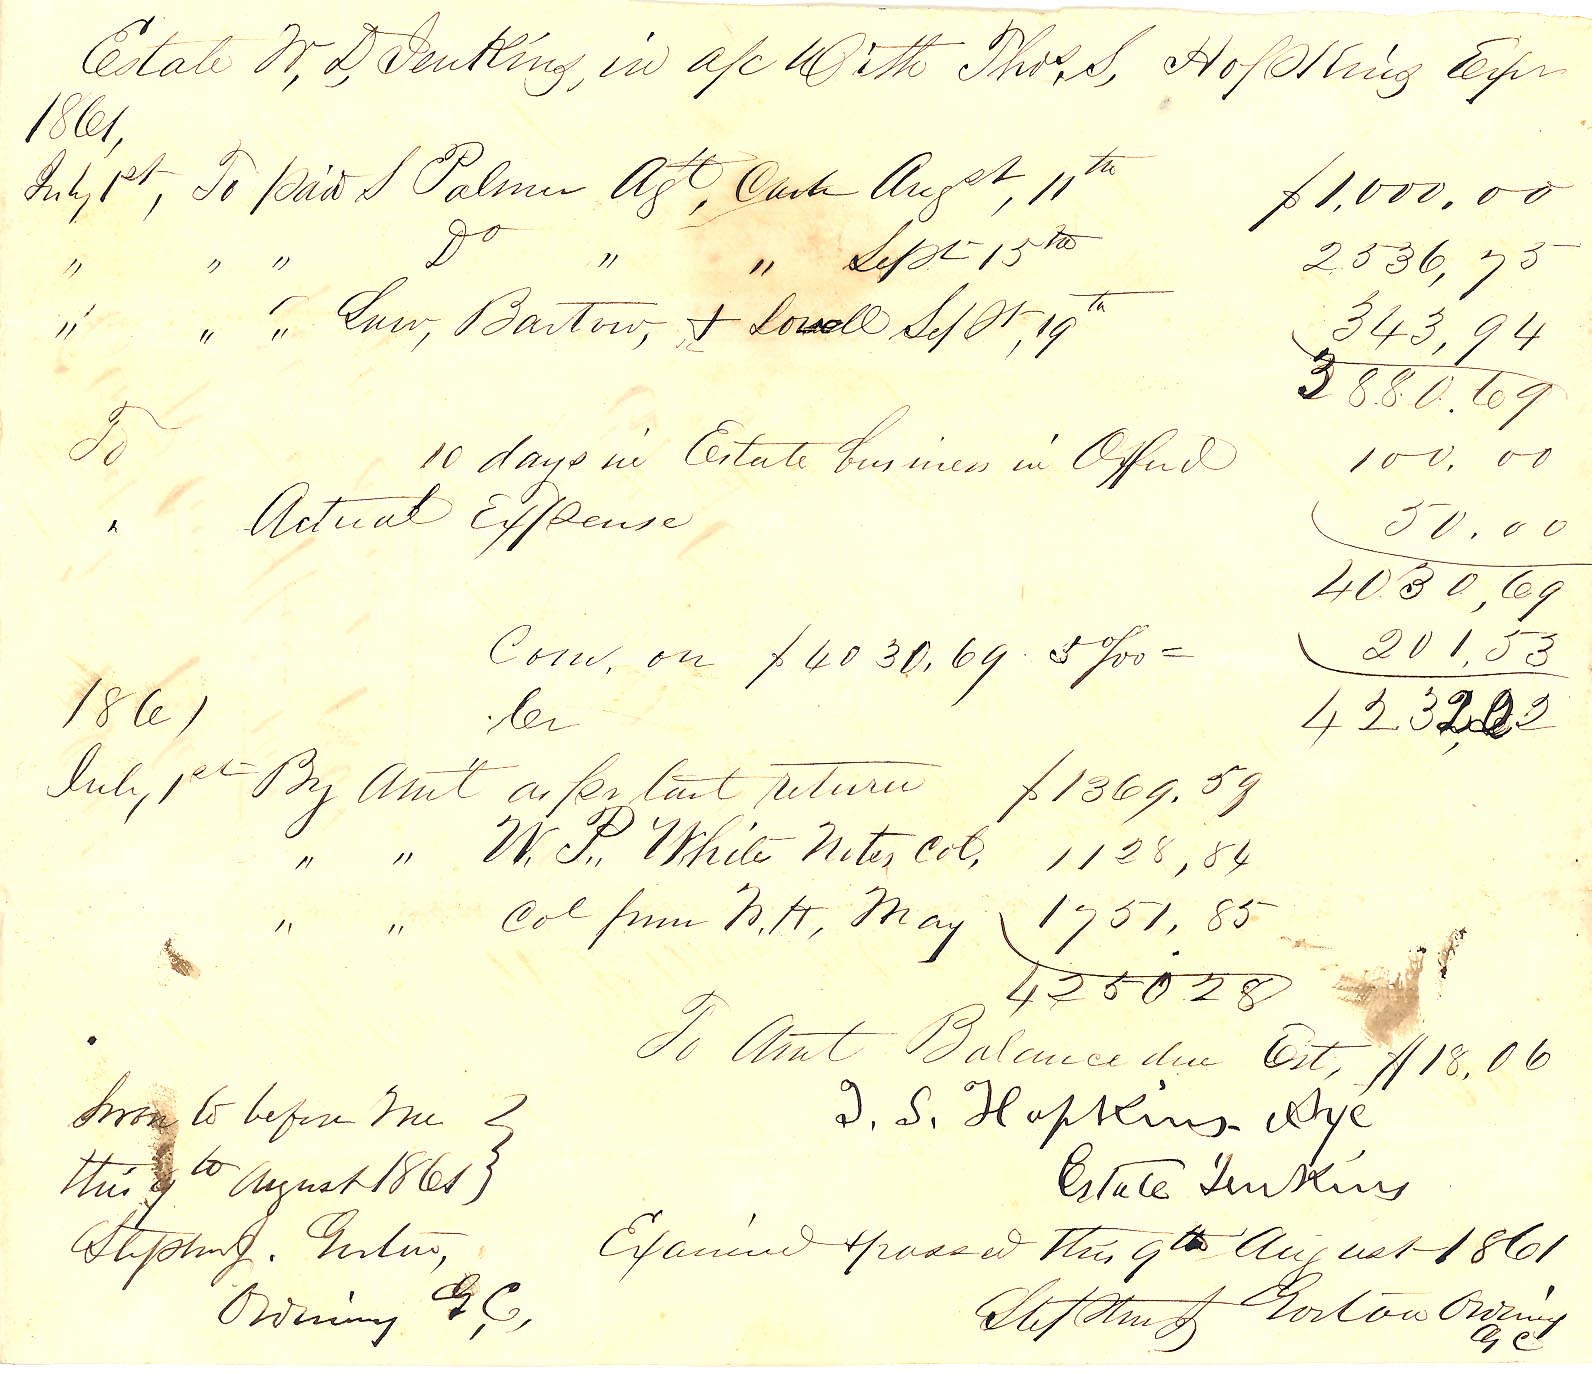 Estate W, D, Jenkins, in a/c With Thos, S, Hopkins Exr
1861,
July, 1st, To paid S Palmer Agt, Cash Augst, 11th $1,000.00
" " " Do " " Sept 15th 2536,75
" " " Law, Bartow, & Lovell Sept, 19th 343,94
3880.69
To 10 days in Estate business in 100.00
" Actual Expense 50.00
4030,69
Com, on $4030,69 5 %00 = 201,53
1861 Cr 4232,22
July, 1st By Amt as pr last return $1369.59
" " W. P., White Notes Col, 1128,84
" " Col from N. H, May 1751,85
425028
To Amt Balance due Est, $18,06
T. S. Hopkins
Estate Jenkins
Sworn to before Me
this 9th August 1861
Stephen J. Gorton,
Ordinary G C,
Examined & passed this 9th August 1861
Stephen J Gorton Ordinary
G C